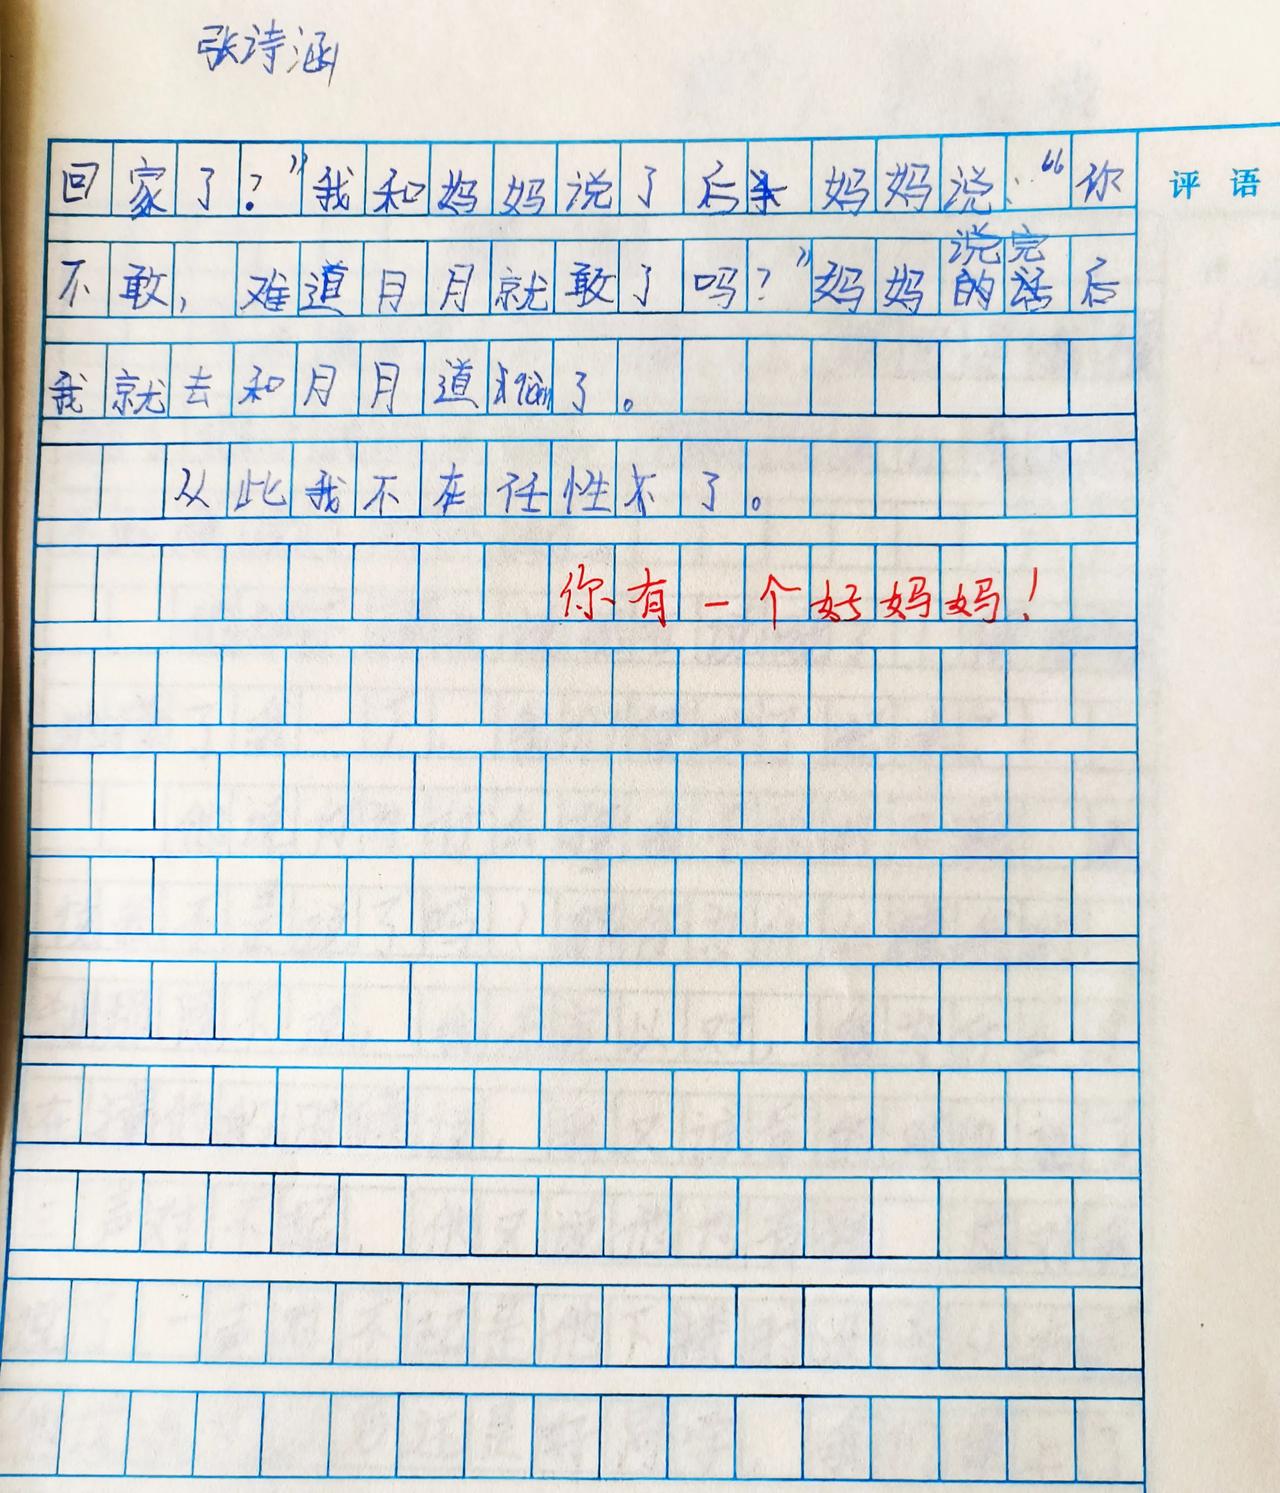 张诗涵
回家了？”我和妈妈说了后 妈妈说：“你
评语
说完
不敢，难道月月就敢了吗？”妈妈的话后
我就去和月月道qiàn了。
从此我不在任性了。
你有一个好妈妈！